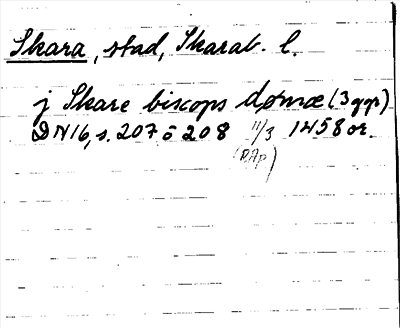 Skara, stad, Skarab. l.
j Skare biscops dømæ (3 ggr)
DN16, s. 207 o 208 11/3 1458 or.
(RAp)